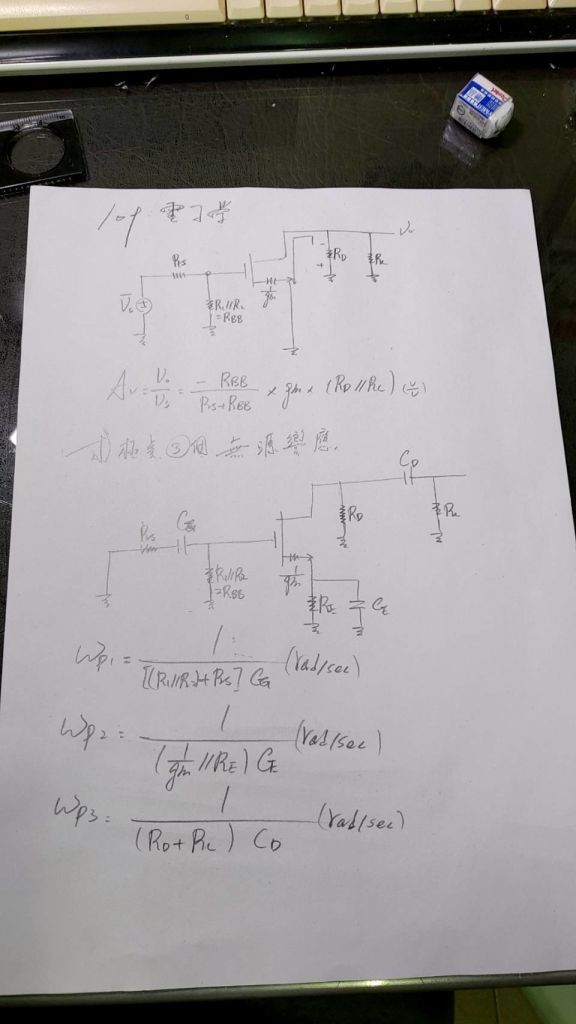 109 電子學
Vo
Rs
RD
RL
Vs
R1//R2
=RBB
1/gm
Av = Vo/Vs = -RBB/(Rs+RBB) × gm × (RD//RL) (V/V)
極点③個 無源響應.
CD
Rs
CG
RD
RL
R1//R2
=RBB
1/gm
RE
CE
ωp1 = 1/([(R1//R2)+Rs] CG) (rad/sec)
ωp2 = 1/((1/gm //RE) CE) (rad/sec)
ωp3 = 1/((RD+RL) CD) (rad/sec)